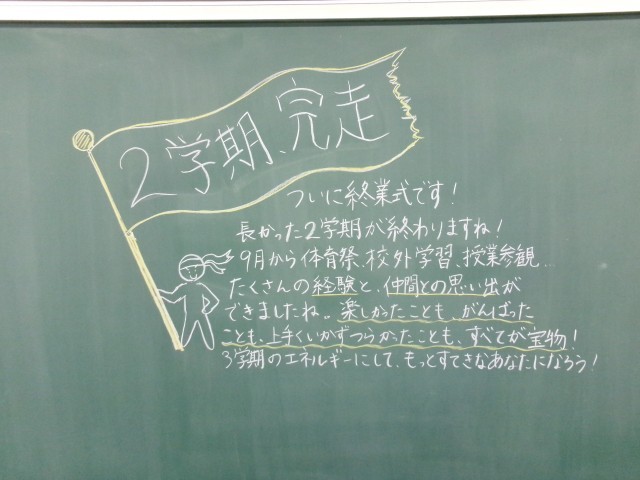 2学期、完走
ついに終業式です!
長かった2学期が終わりますね!
9月から体育祭、校外学習、授業参観…
たくさんの経験と、仲間との思い出が
できましたね。楽しかったことも、がんばった
ことも、上手くいかずつらかったことも、すべてが宝物!
3学期のエネルギーにして、もっとすてきなあなたになろう!